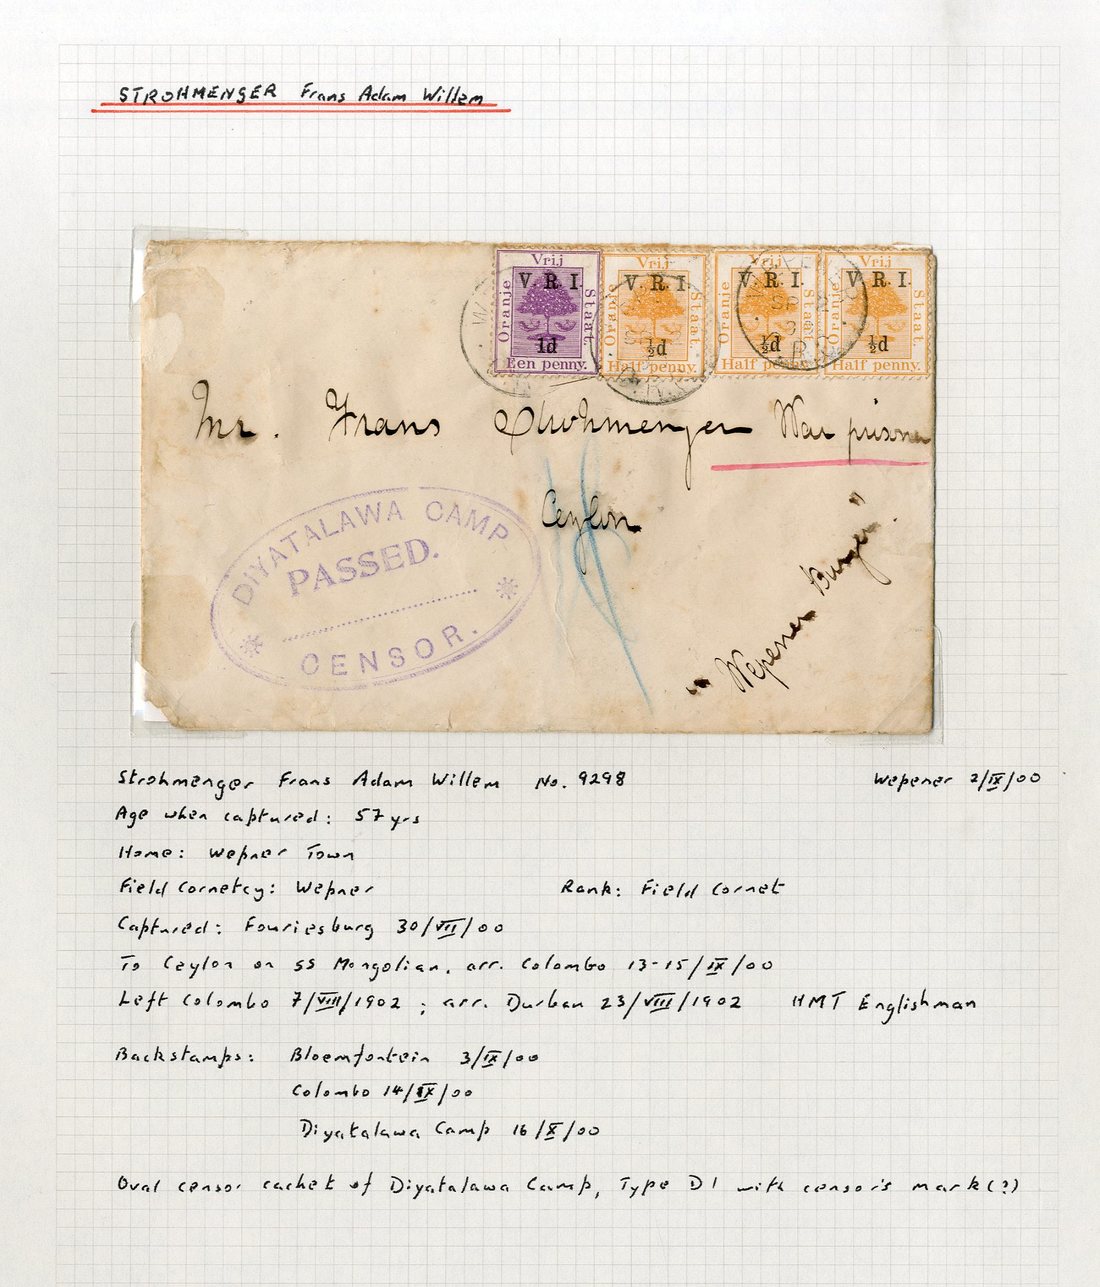 STROHMENGER Frans Adam Willem
Vrij Vrij Vrij Vrij
V. R. I. V. R. I. V. R. I. V. R. I.
Oranje Staat. Oranje Staat. Oranje Staat. Oranje Staat.
1d ½d ½d ½d
Een penny. Half penny. Half penny. Half penny.
SP 2
O.R.S.
Mr. Frans Strohmenger War prisoner
Ceylon
DIYATALAWA CAMP
PASSED.
CENSOR.
"Wepener Burger".
Strohmenger Frans Adam Willem No. 9298 Wepener 2/IX/00
Age when captured: 57 yrs
Home: Wepner Town
Field Cornetcy: Wepner Rank: Field Cornet
Captured: Fouriesburg 30/VII/00
To Ceylon on SS Mongolian, arr. Colombo 13-15/IX/00
Left Colombo 7/VIII/1902 ; arr. Durban 23/VIII/1902 HMT Englishman
Backstamps: Bloemfontein 3/IX/00
Colombo 14/IX/00
Diyatalawa Camp 16/X/00
Oval censor cachet of Diyatalawa Camp, Type D1 with censor's mark(?)